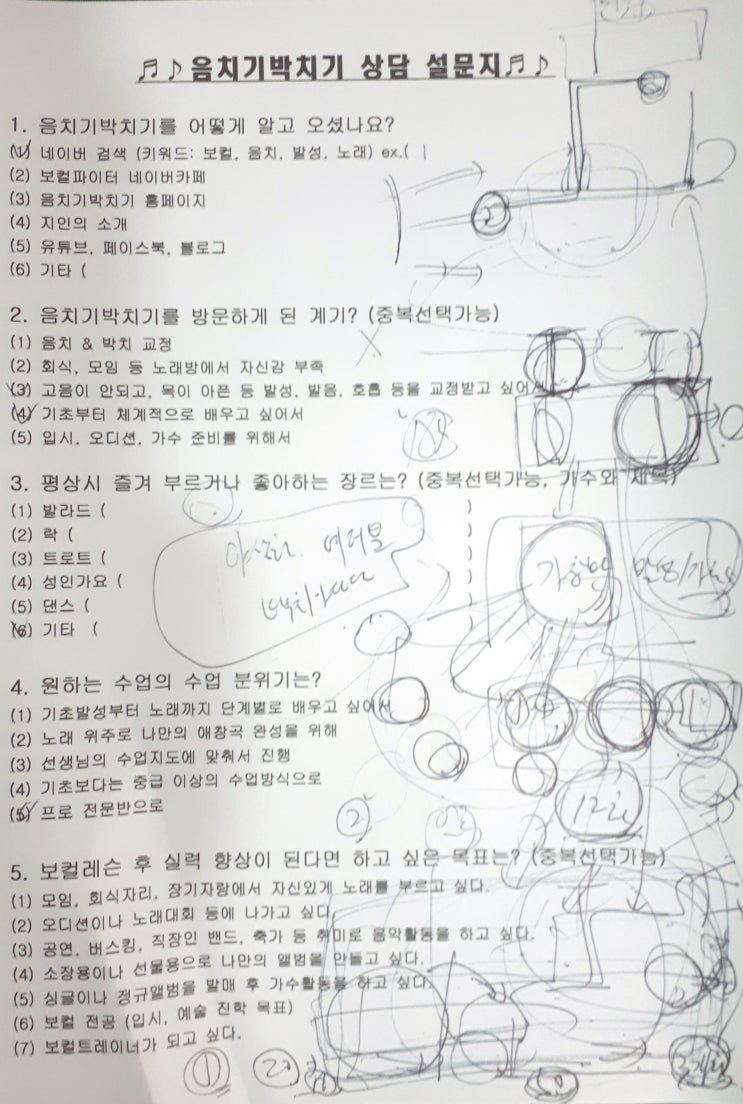 ♬♪음치기박치기 상담 설문지♬♪
1. 음치기박치기를 어떻게 알고 오셨나요?
(1) 네이버 검색 (키워드: 보컬, 음치, 발성, 노래) ex.(
(2) 보컬파이터 네이버카페
(3) 음치기박치기 홈페이지
(4) 지인의 소개
(5) 유튜브, 페이스북, 블로그
(6) 기타 (
2. 음치기박치기를 방문하게 된 계기? (중복선택가능)
(1) 음치 & 박치 교정
(2) 회식, 모임 등 노래방에서 자신감 부족
(3) 고음이 안되고, 목이 아픈 등 발성, 발음, 호흡 등을 교정받고 싶어서
(4) 기초부터 체계적으로 배우고 싶어서
(5) 입시, 오디션, 가수 준비를 위해서
3. 평상시 즐겨 부르거나 좋아하는 장르는? (중복선택가능, 가수와 제목)
(1) 발라드 ( )
(2) 락 ( )
(3) 트로트 ( )
(4) 성인가요 ( )
(5) 댄스 ( )
(6) 기타 ( )
4. 원하는 수업의 수업 분위기는?
(1) 기초발성부터 노래까지 단계별로 배우고 싶어서
(2) 노래 위주로 나만의 애창곡 완성을 위해
(3) 선생님의 수업지도에 맞춰서 진행
(4) 기초보다는 중급 이상의 수업방식으로
(5) 프로 전문반으로
2
5. 보컬레슨 후 실력 향상이 된다면 하고 싶은 목표는? (중복선택가능)
(1) 모임, 회식자리, 장기자랑에서 자신있게 노래를 부르고 싶다.
(2) 오디션이나 노래대회 등에 나가고 싶다.
(3) 공연, 버스킹, 직장인 밴드, 축가 등 취미로 음악활동을 하고 싶다.
(4) 소장용이나 선물용으로 나만의 앨범을 만들고 싶다.
(5) 싱글이나 정규앨범을 발매 후 가수활동을 하고 싶다.
(6) 보컬 전공 (입시, 예술 진학 목표)
(7) 보컬트레이너가 되고 싶다.
①